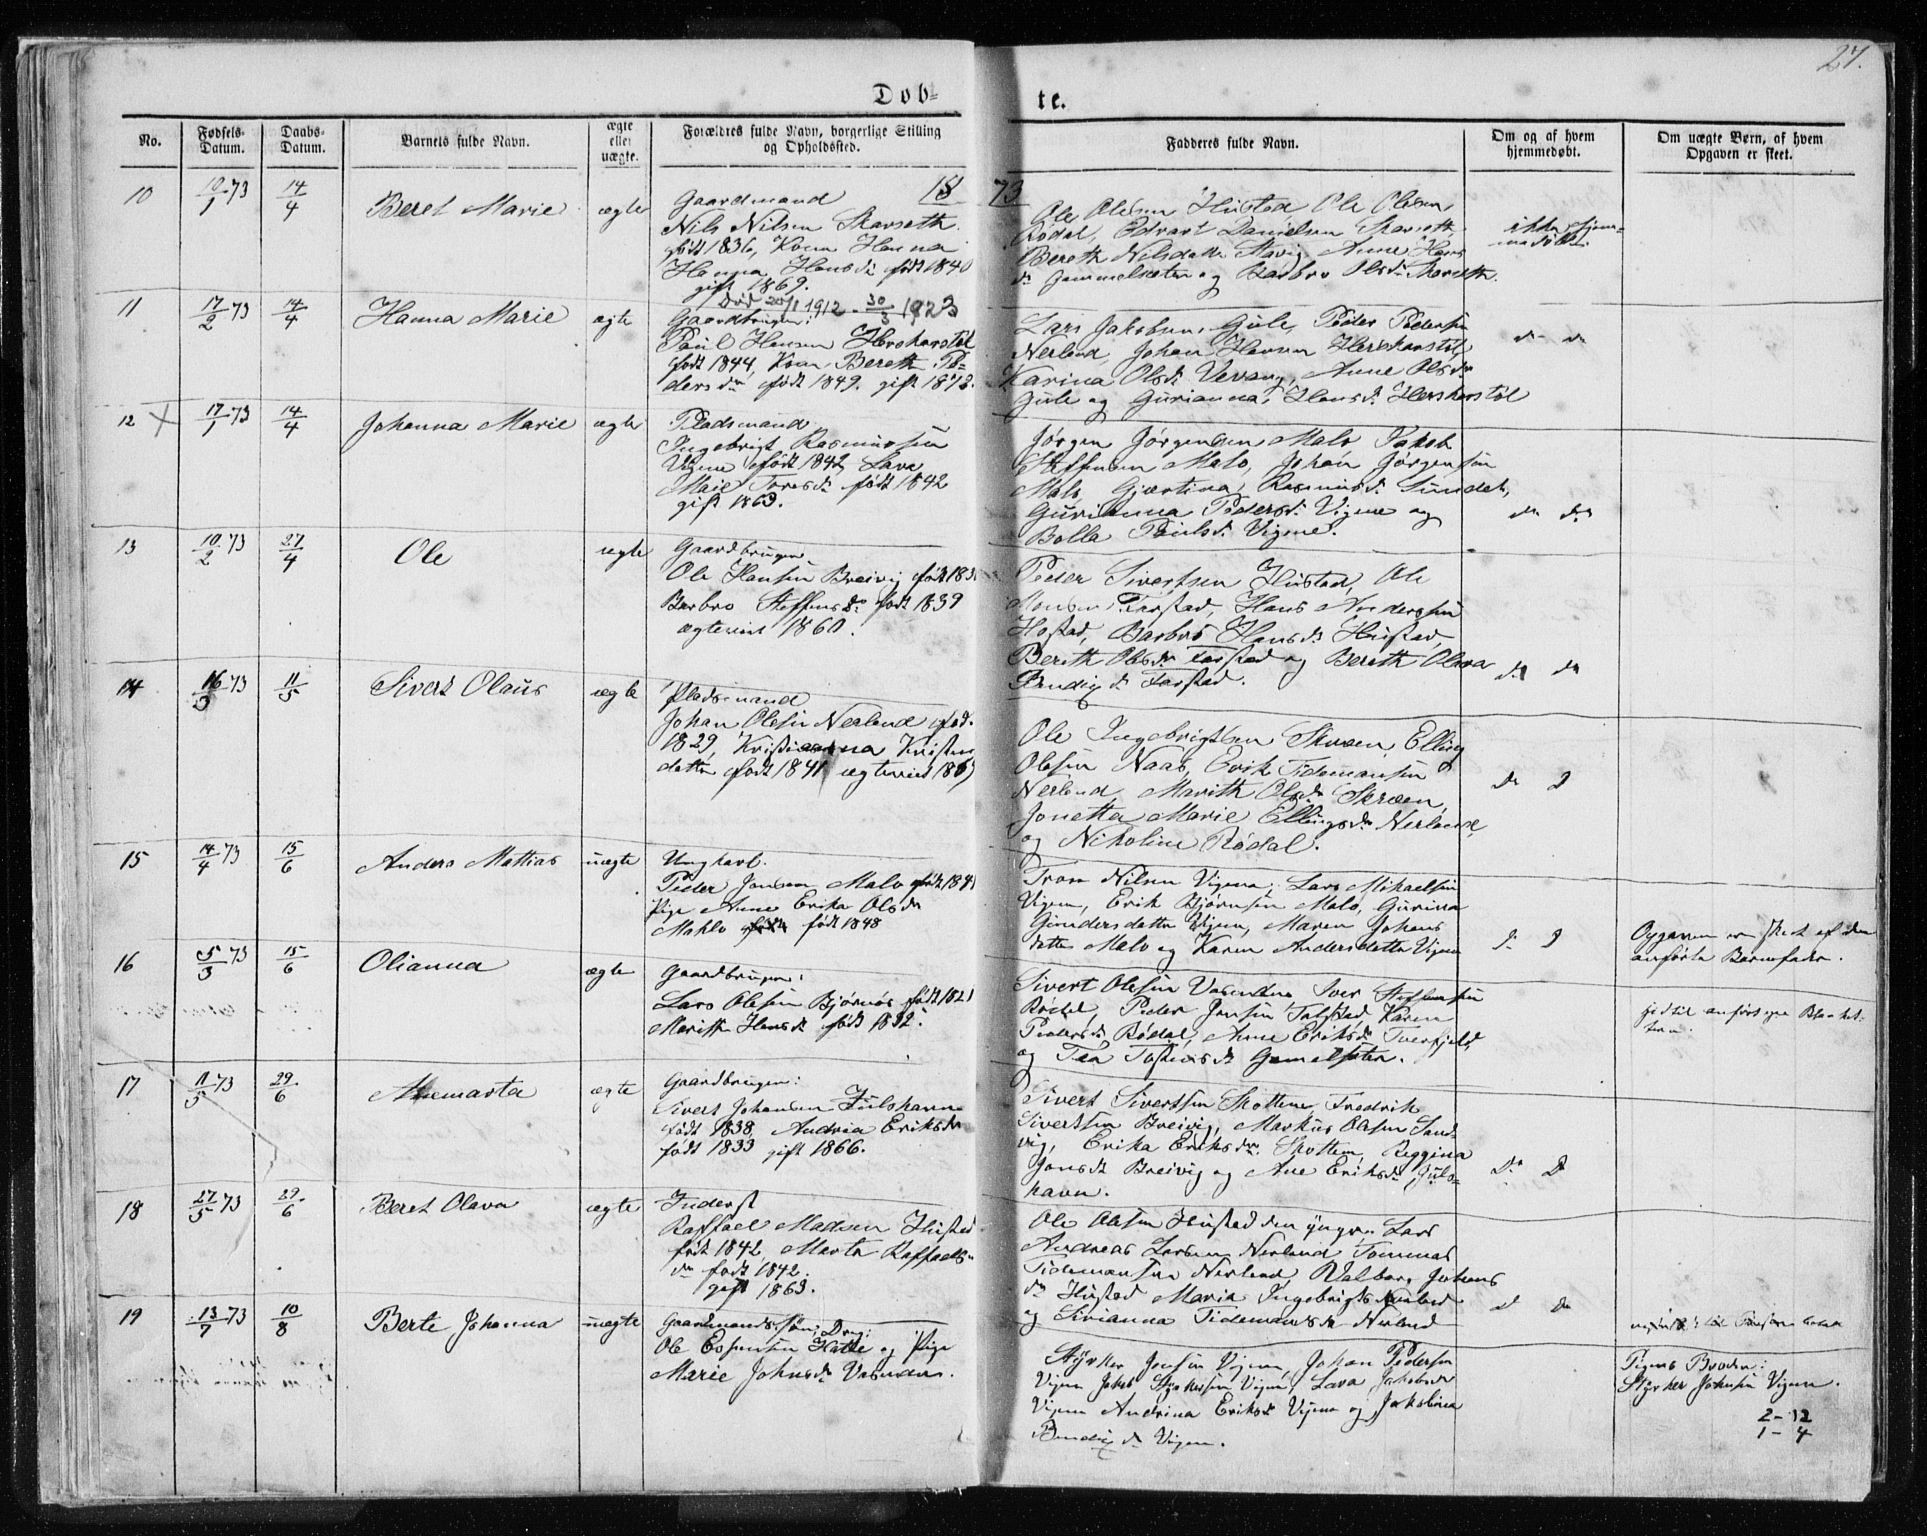 27.
Døb= te.
No. Fødsels-Datum. Daabs-Datum. Barnets fulde Navn. ægte eller uægte. Forældres fulde Navn, borgerlige Stilling og Opholdssted. Fadderes fulde Navn. Om og af hvem hjemmedøbt. Om uægte Børn, af hvem Opgaven er skeet.
1873
10 10/1 73 14/4 Beret Marie ægte
Gaardmand
Nils Nilsen Skarseth
født 1836, Kona Hanna
Hanna Hansdr født 1840
gift 1869.
Ole Olesen Hustad, Ole Olesen
Rødal, Edvart Danielsen Skarseth,
Bereth Nilsdatter Stavig, Anne Hans
dr Gammelsæter og Barbro Olsdr Skarseth
ikke hjem-
medøbt.
11 17/2 73 14/4 Hanna Marie ægte
Død 20/1 1912 - 30/3 1923
Gaardbruger:
Paul Hansen Herskarstøl
født 1844, Kona Bereth Pe-
dersdr født 1849. gift 1872.
Lars Jakobsen Gule, Peder Pedersen
Nerland, Johan Hansen Herskarstøl,
Karina Olsdr Vevang, Anne Olsdr
Gule og Gurianna Hansdr Herskarstøl
do do
12 X 17/1 73 14/4 Johanna Marie ægte
Pladsmand
Ingebrigt Rasmussen
Vigene født 1842, Lava
Marie Toresdr født 1842
gift 1863.
Jørgen Jørgensen Malo, Jakob
Steffensen Malo, Johan Jørgensen
Malo, Gjertina Rasmusdr Sundet,
Gurianna Pedersdr Vigene og
Bolla Paulsdr Vigene.
do do
13 10/2 73 27/4 Ole ægte
Gaardbruger
Ole Hansen Breivig født 183
Barbro Steffensdr født 1839
ægteviet 1860.
Peder Sivertsen Hustad, Ole
Monsen Farstad, Hans Andersen
Hostad, Barbro Hansdr Hustad,
Bereth Olsdr Farstad og Bereth Olava
Bendixdr Farstad.
do do
14 16/3 73 11/5 Sivert Olaus ægte
Pladsmand
Johan Olesen Nerland fød.
1829, Kristianna Kristens
datter født 1841, ægteviet 186
Ole Ingebrigtsen Skræen, Elling
Olesen Naas, Erik Tidemansen
Nerland, Marith Olsdr Skræen,
Jonetta Marie Ellingsdr Nerland
og Nikoline Rødal.
do D
15 14/4 73 15/6 Anders Mattias uægte
Ungkarl.
Peder Jonsen Malo født 1841
Pige Anne Erika Olsdr
Mahlo født 1848
Tron Nilsen Vigene, Lars Mikaelsen
Vigen, Erik Bjørnsen Malo, Gurina
Gundersdatter Vigen, Maren Johans
datter Malo og Karen Andersdatter Vigen
D D
Opgaven er skeet af den
anførte Barnefader.
16 5/3 73 15/6 Olianna ægte
Gaardbruger:
Lars Olesen Bjørnøs født 1821
Marith Hansdr født 1832.
Sivert Olesen Vasenden, Iver Steffensen
Rødal, Peder Jensen Talstad, Karen
Pedersdr Rødal, Anne Eriksdr Tverfjeld,
og Tea Tostensdr Gamelseter.
17 11/5 73 29/6 Annemarta ægte
Gaardbruger:
Sivert Johansen Julshavn
født 1838, Andrea Eriksdr
født 1833 gift 1866.
Sivert Sivertsen Skottem, Fredrik
Sivertsen Breivig, Markus Olesen Sand-
vig, Erika Eriksdr Skottem, Reggina
Jonsdr Breivig og Ane Eriksdr Juls-
havn.
Do D
18 27/5 73 29/6 Beret Olava ægte
Inderst
Raffael Madsen Hustad
født 1842, Marta Raffaels-
dr født 1842.
gift 1863.
Ole Olesen Hustad den yngre, Lars
Andreas Larsen Nerland, Tommas
Tidemansen Nerland, Valborg Johans
dr Hustad, Maria Ingebrigtsdr Nerland
og Sirianna Tidemansdr Nerland
D do
19 13/7 73 10/8 Berte Johanna uægte
Gaardmands Søn, Drg:
Ole Espensen Hatle og Pige
Marie Johnsdr Vasenden.
Styrker Jonsen Vigene, Johan Pedersen
Vigen, Jakob Styrkersen Vigene, Lava Jakobsdr
Vigen, Andrina Eriksdr Vigene og Jakobina
Bendixdr Vigen.
Pigens Broder:
Styrker Johnsen Vigen.
2 - 12
1 - 4